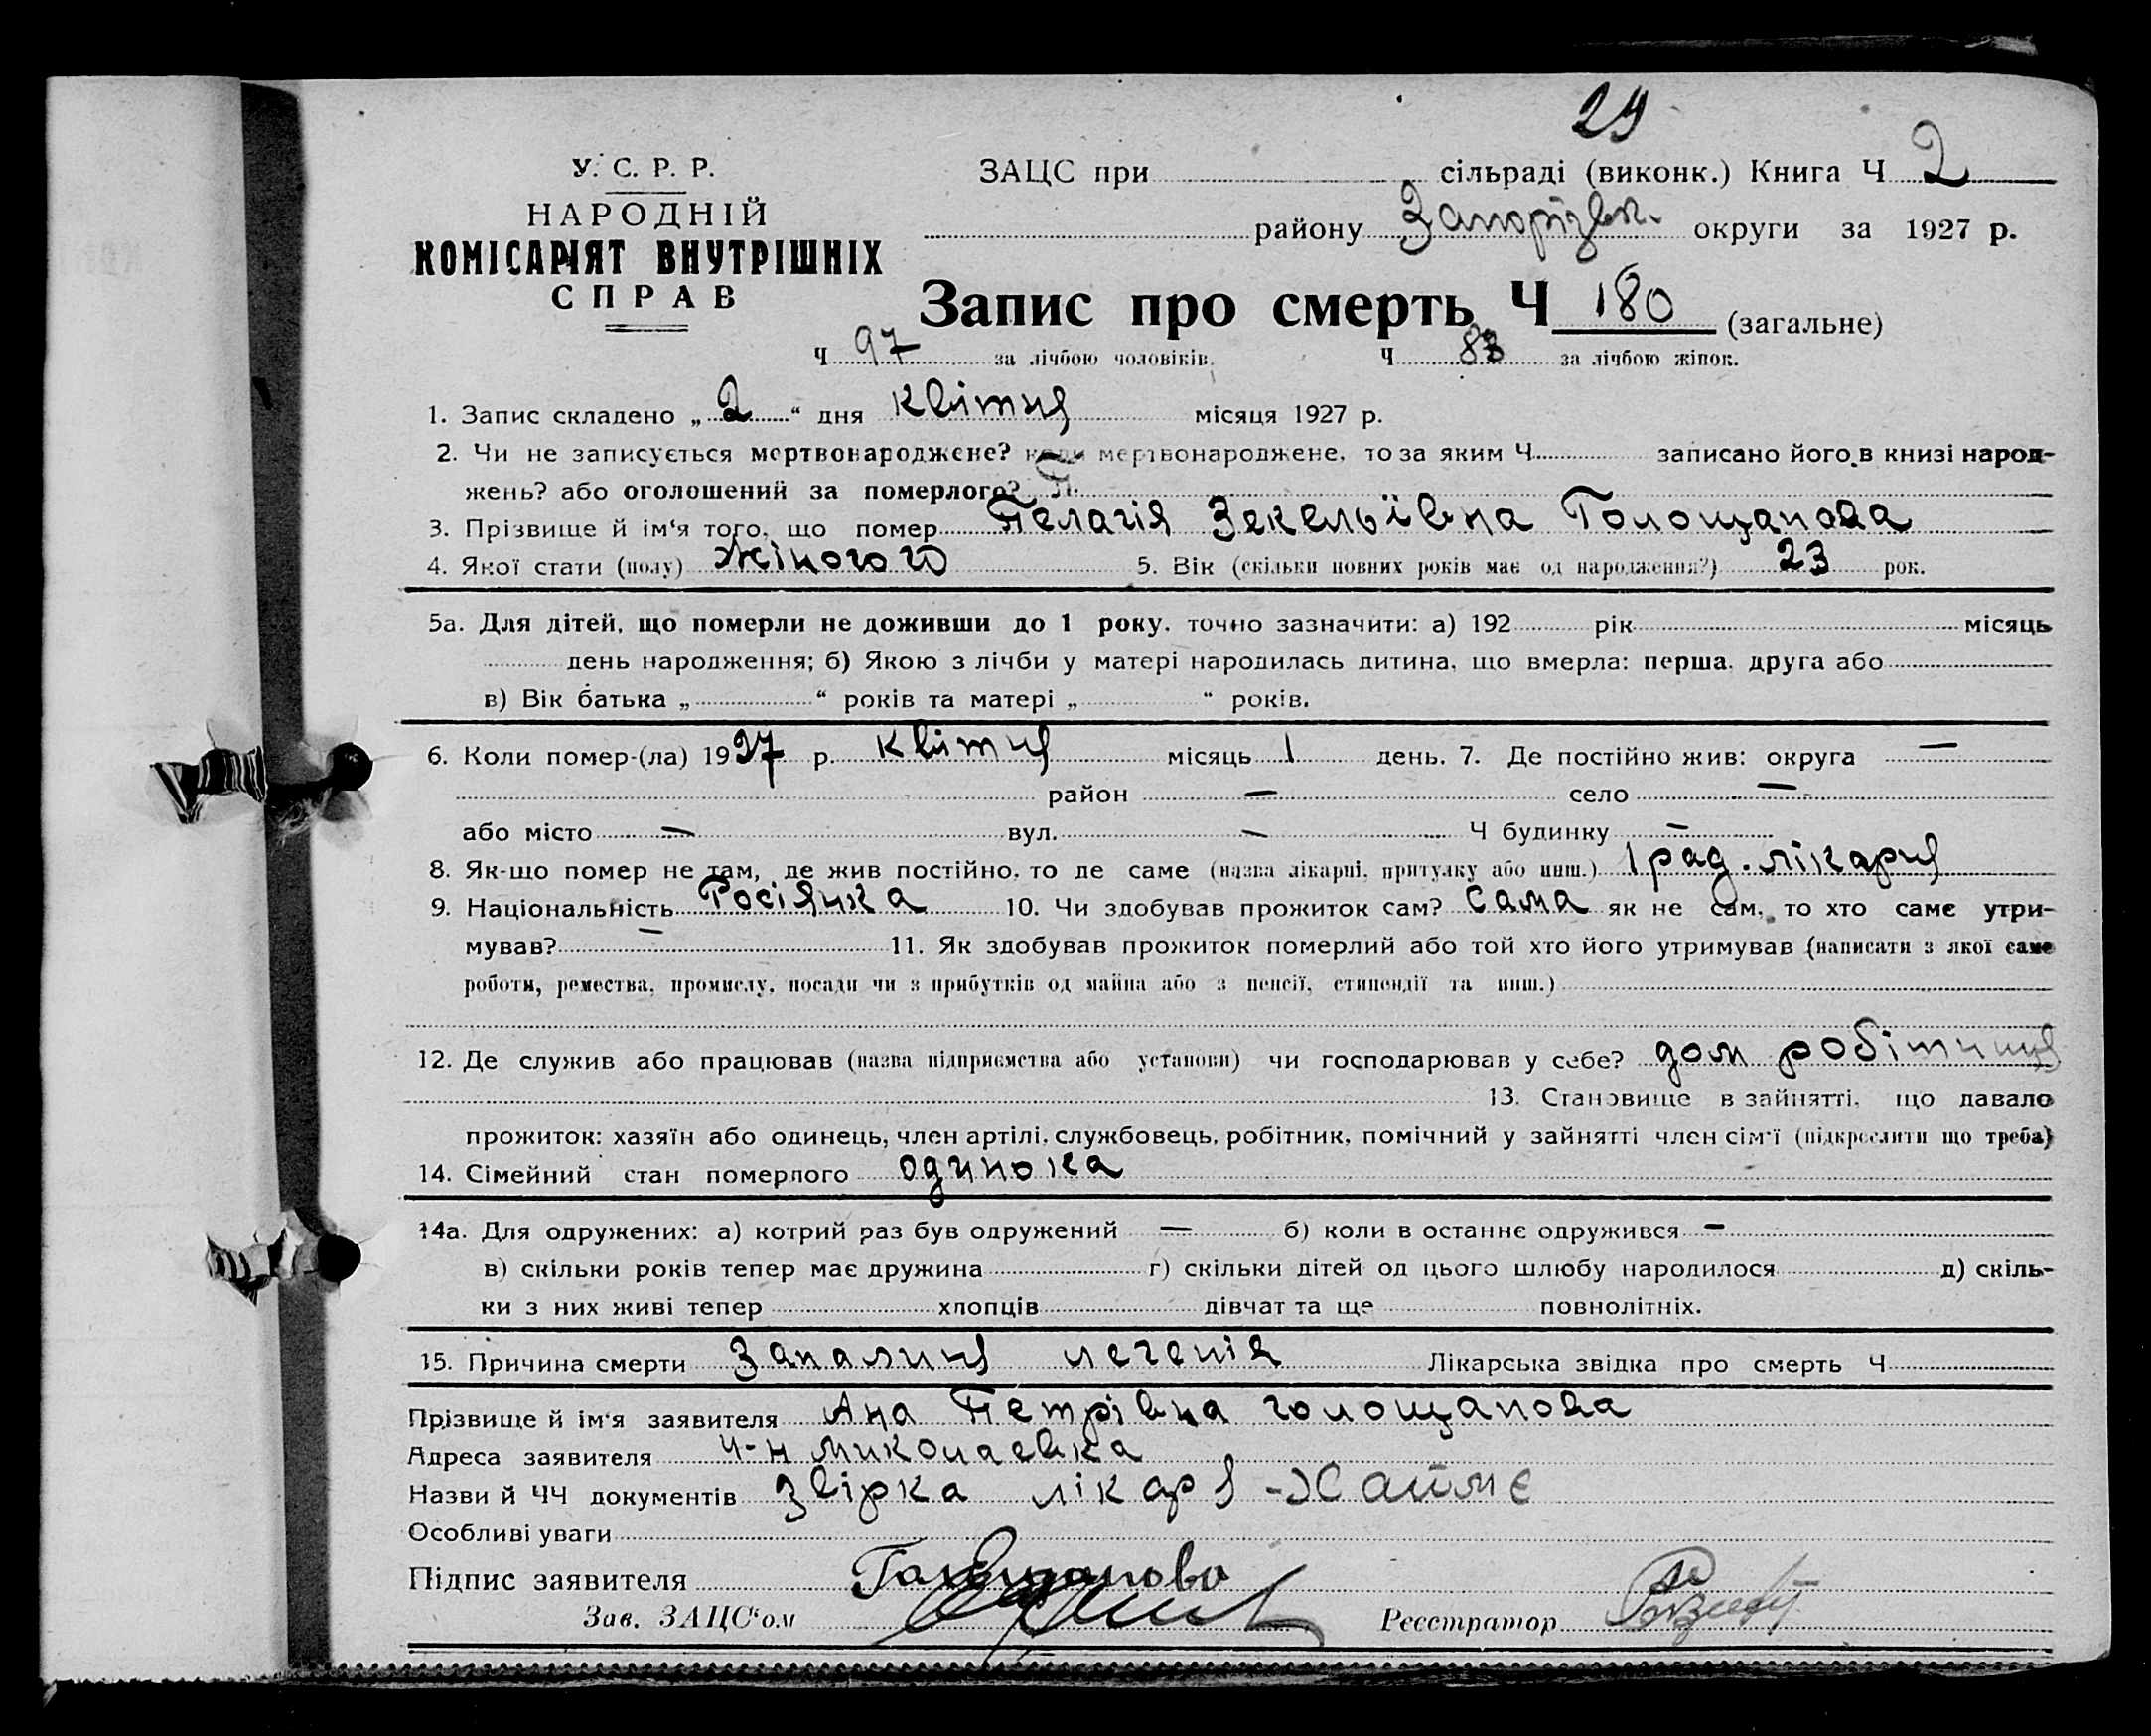 24
У. С. Р. Р.
НАРОДНІЙ
КОМІСАРІЯТ ВНУТРІШНІХ
СПРАВ
ЗАЦС при сільраді (виконк.) Книга Ч 2
району Запорізьк. округи за 1927 р.
Запис про смерть Ч 180 (загальне)
Ч 97 за лічбою чоловіків. Ч 83 за лічбою жінок.
1. Запис складено „ 2 “ дня квітня місяця 1927 р.
2. Чи не записується мертвонароджене? коли мертвонароджене, то за яким Ч записано його в книзі народ-
жень? або оголошений за померлого?
3. Прізвище й ім‘я того, що помер Пелагія Зекельївна Голощапова
4. Якої стати (полу) жіночого 5. Вік (скільки повних років має од народження?) 23 рок.
5а. Для дітей, що померли не доживши до 1 року, точно зазначити: а) 192 рік місяць
день народження; б) Якою з лічби у матері народилась дитина, що вмерла: перша, друга або
в) Вік батька „ “ років та матері „ “ років.
6. Коли помер-(ла) 1927 р. квітня місяць 1 день. 7. Де постійно жив: округа —
район — село —
або місто — вул. — Ч будинку —
8. Як-що помер не там, де жив постійно, то де саме (назва лікарні, притулку або инш.) 1 рад. лікарня
9. Національність Росіянка 10. Чи здобував прожиток сам? сама як не сам, то хто саме утри-
мував? — 11. Як здобував прожиток померлий або той хто його утримував (написати з якої саме
роботи, ремества, промислу, посади чи з прибутків од майна або з пенсії, стипендії та инш.)
12. Де служив або працював (назва підприємства або установи) чи господарював у себе? дом робітниця
13. Становище в зайнятті, що давало
прожиток: хазяїн або одинець, член артілі, службовець, робітник, помічний у зайнятті член сім‘ї (підкреслити що треба)
14. Сімейний стан померлого одинока
14а. Для одружених: а) котрий раз був одружений — б) коли в останнє одружився —
в) скільки років тепер має дружина г) скільки дітей од цього шлюбу народилося д) скіль-
ки з них живі тепер хлопців дівчат та ще повнолітніх.
15. Причина смерти Запалиня легенів Лікарська звідка про смерть Ч
Прізвище й ім‘я заявителя Ана Петрівна голощапова
Адреса заявителя Миколаевка
Назви й ЧЧ документів Звірка лікаря
Особливі уваги
Підпис заявителя Голощапова
Зав. ЗАЦС‘ом Реєстратор